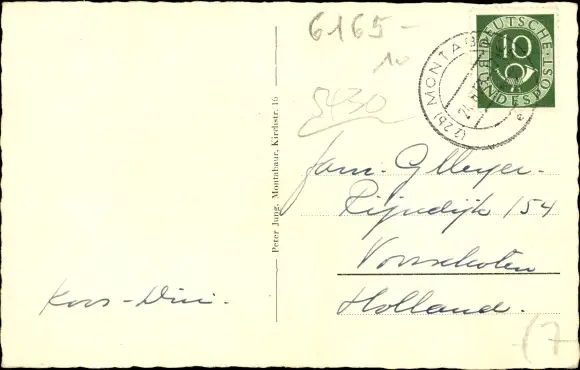 6165-
10
5430
DEUTSCHE BUNDESPOST
10
(22b) MONTABAUR
e
Peter Jung, Montabaur, Kirchstr. 15
Fam. Gllleyer.
Rijndijk 154
Voorschoten
Holland.
Koos-Dini.
(7